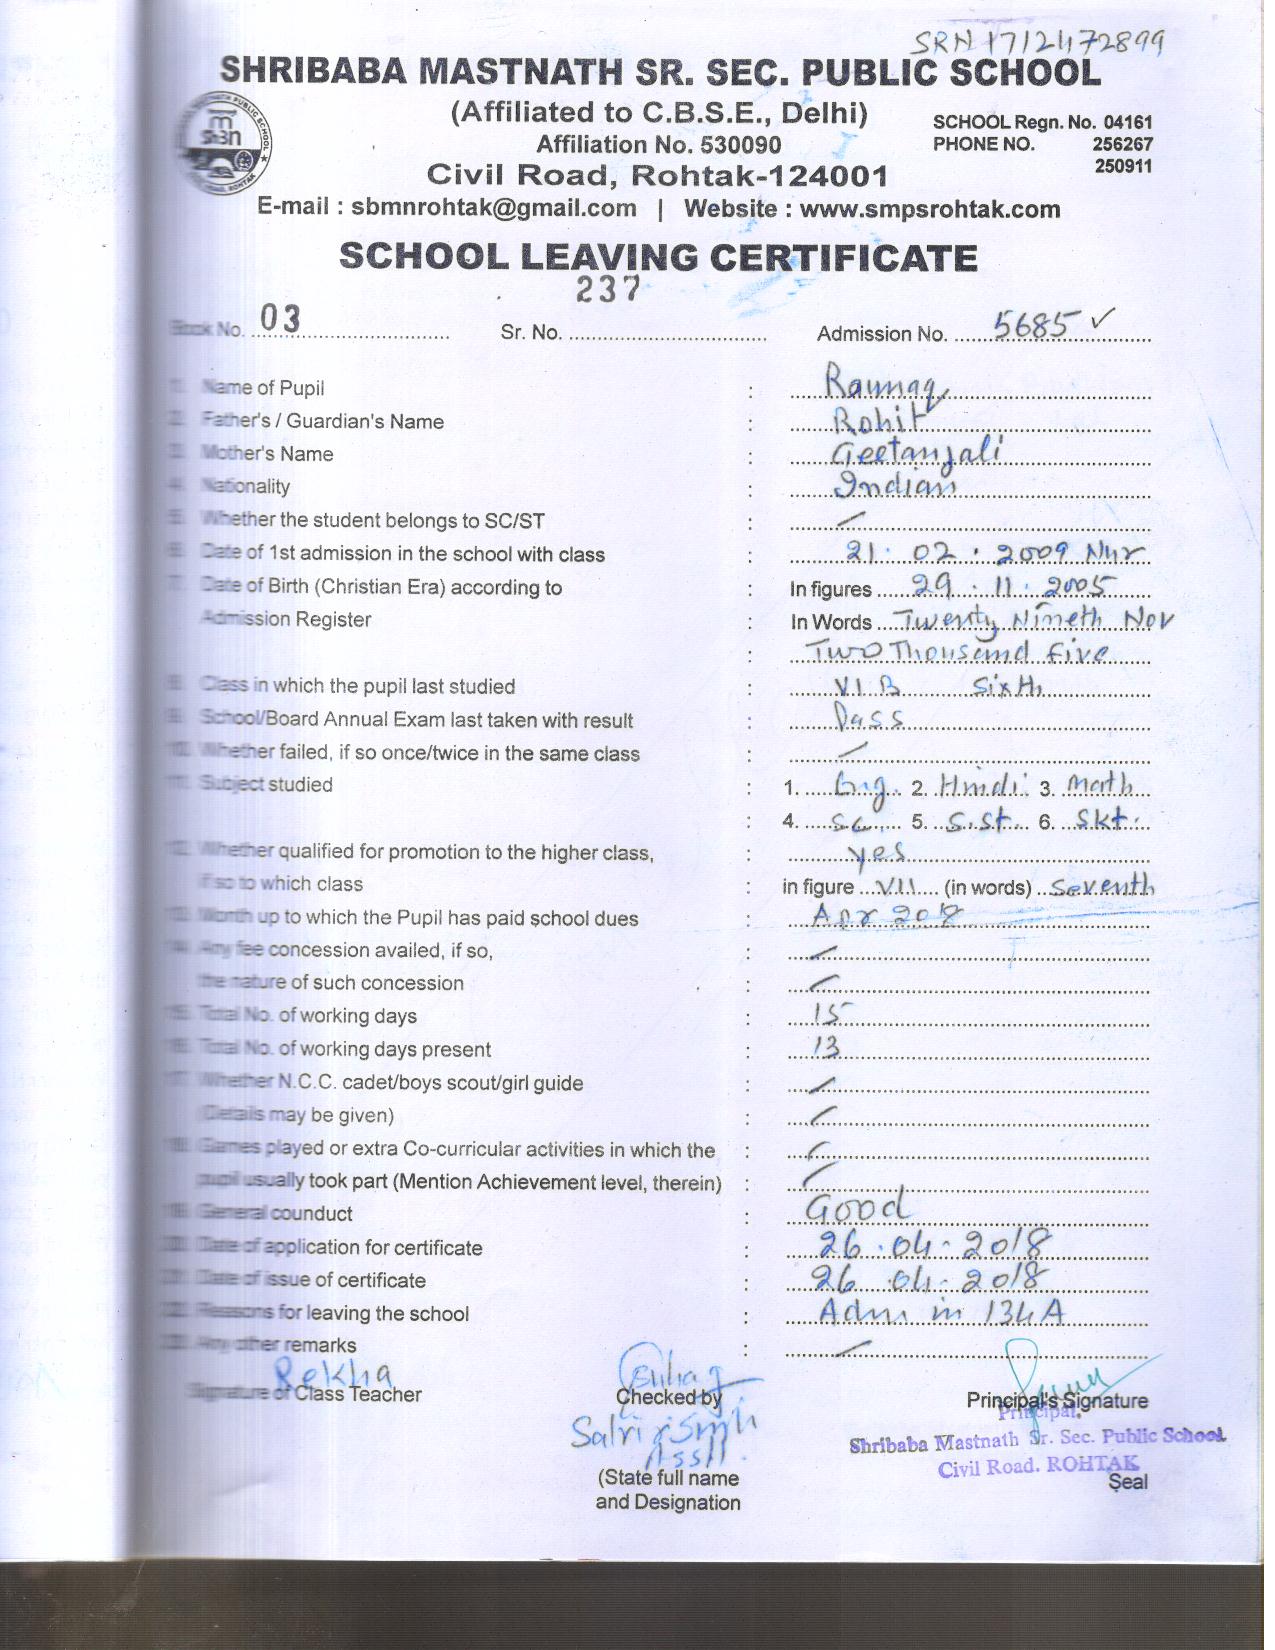 SRN 1712472899
SHRIBABA MASTNATH SR. SEC. PUBLIC SCHOOL
(Affiliated to C.B.S.E., Delhi)
Affiliation No. 530090
SCHOOL Regn. No. 04161
PHONE NO. 256267
250911
Civil Road, Rohtak-124001
E-mail : sbmnrohtak@gmail.com | Website : www.smpsrohtak.com
SCHOOL LEAVING CERTIFICATE
237
Book No. 03 Sr. No. Admission No. 5685 ✓
1. Name of Pupil : Raunaq
2. Father's / Guardian's Name : Rohit
3. Mother's Name : Geetanjali
4. Nationality : Indian
5. Whether the student belongs to SC/ST :
6. Date of 1st admission in the school with class : 21. 02. 2009 Nur
7. Date of Birth (Christian Era) according to : In figures 29. 11. 2005
Admission Register : In Words Twenty Nineth Nov
: Two Thousand Five
8. Class in which the pupil last studied : VI B Sixth
9. School/Board Annual Exam last taken with result : Pass
10. Whether failed, if so once/twice in the same class :
11. Subject studied : 1. Eng. 2. Hindi 3. Math
: 4. Sc. 5. S.St. 6. Skt.
12. Whether qualified for promotion to the higher class, : yes
if so to which class : in figure VII (in words) Seventh
13. Month up to which the Pupil has paid school dues : Apr 2018
14. Any fee concession availed, if so, :
the nature of such concession :
15. Total No. of working days : 15
16. Total No. of working days present : 13
17. Whether N.C.C. cadet/boys scout/girl guide :
(Details may be given) :
18. Games played or extra Co-curricular activities in which the :
pupil usually took part (Mention Achievement level, therein) :
19. General counduct : Good
20. Date of application for certificate : 26. 04. 2018
21. Date of issue of certificate : 26 04. 2018
22. Reasons for leaving the school : Adm in 134A
23. Any other remarks :
Rekha
Signature of Class Teacher Checked by Principal's Signature
Principal,
Shribaba Mastnath Sr. Sec. Public School
Civil Road. ROHTAK
(State full name Seal
and Designation